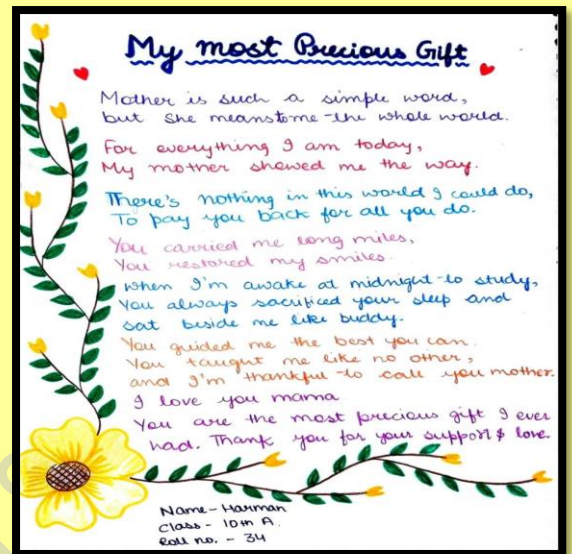 My most Precious Gift
Mother is such a simple word,
but she means to me the whole world.
For everything I am today,
My mother showed me the way.
There's nothing in this world I could do,
To pay you back for all you do.
You carried me long miles,
You restored my smiles.
when I'm awake at midnight to study,
You always sacrificed your sleep and
sat beside me like buddy.
You guided me the best you can.
You taught me like no other,
and I'm thankful to call you mother.
I love you mama
You are the most precious gift I ever
had. Thank you for your support & love.
Name - Harman
Class - 10th A.
Roll no. - 34